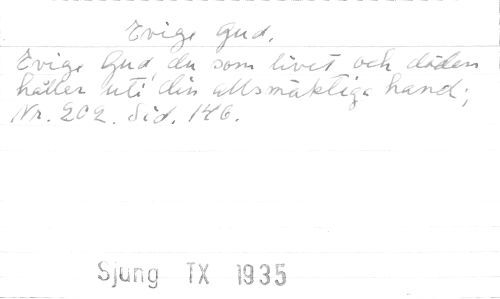 Evige Gud.
Evige Gud, du som livet och döden
håller uti din allsmäktiga hand;
Nr. 202. Sid. 146.
Sjung TX 1935